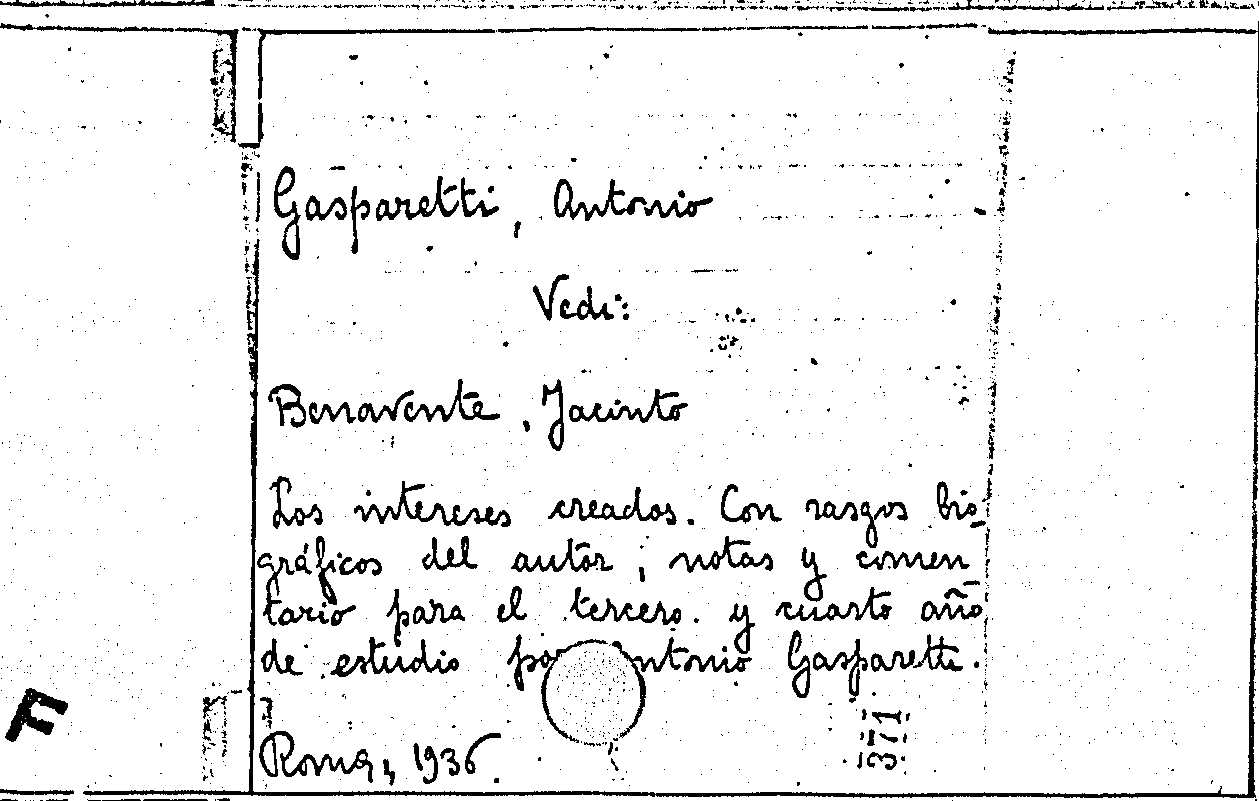 Gasparetti, Antonio
Vedi:
Benavente, Jacinto
Los intereses creados. Con rasgos bio-
gráficos del autor, notas y comen
tario para el tercero y cuarto año
de estudio por Antonio Gasparetti.
Roma, 1936.
371
F